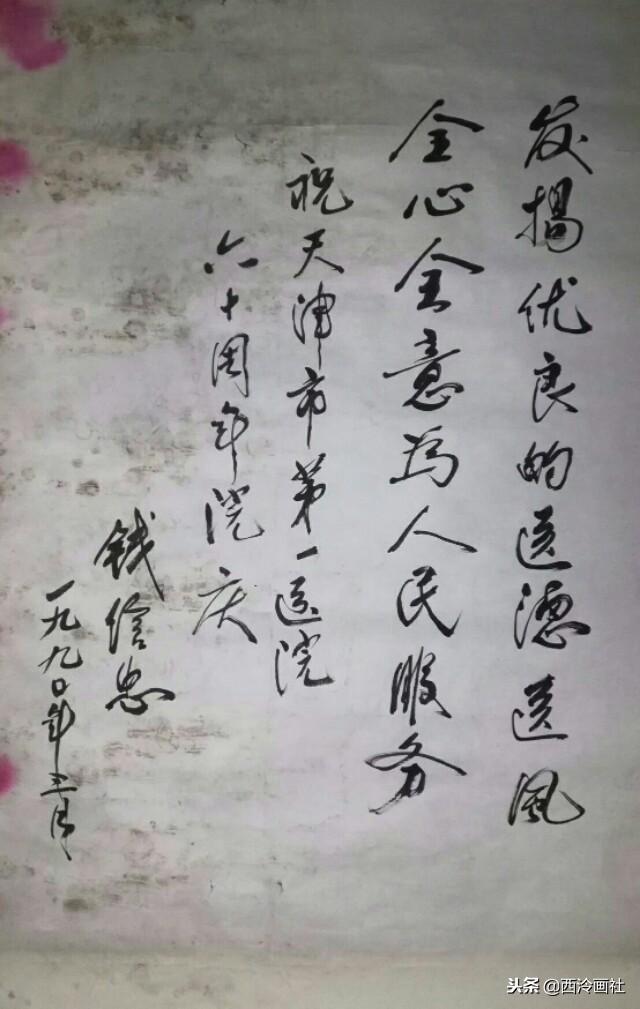 发揚优良的医德医风
全心全意为人民服务
祝天津市第一医院
六十周年院庆
钱信忠
一九九〇年三月
头条@西泠画社